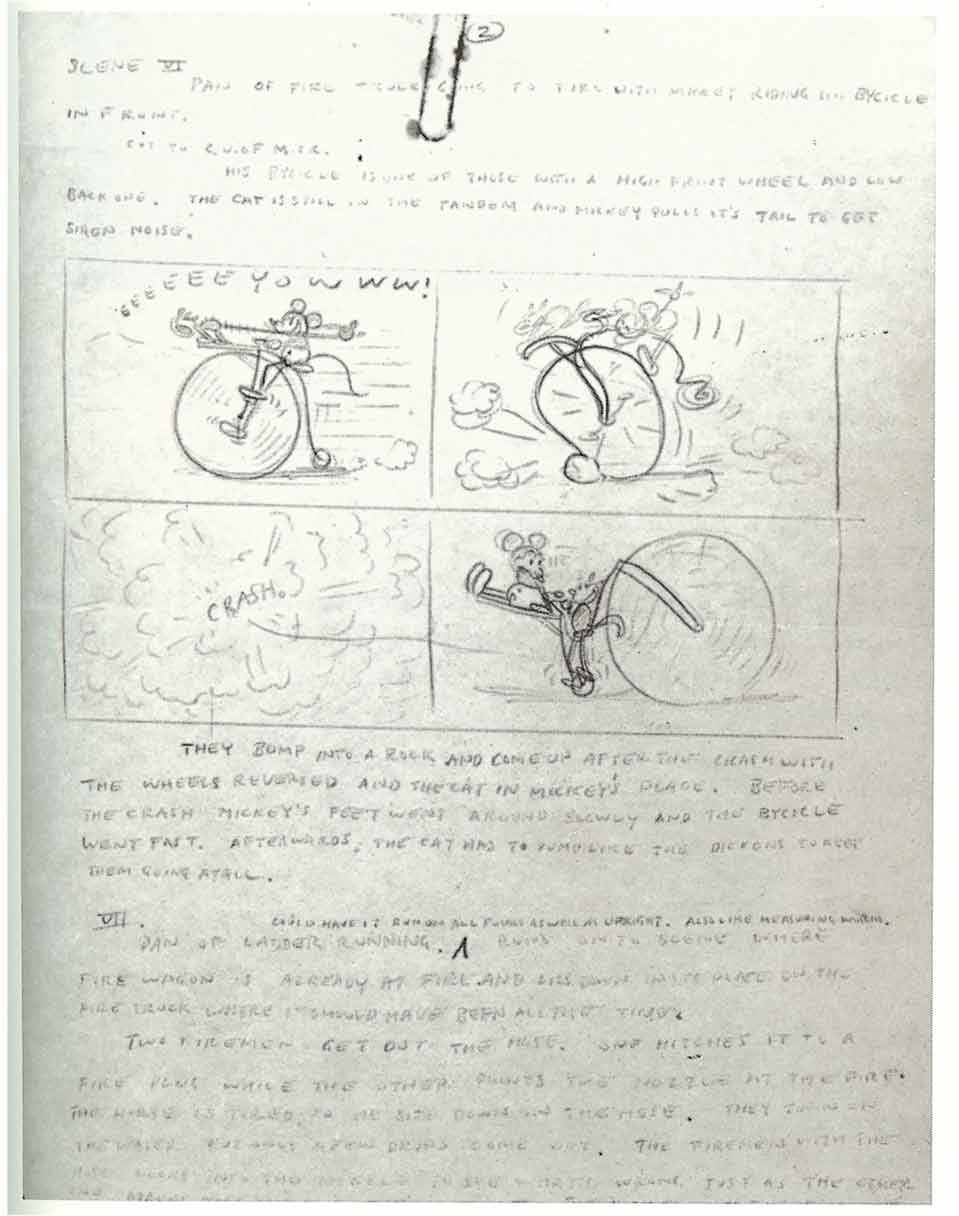 2
SCENE VI
PAN OF FIRE TRUCK GOING TO FIRE WITH MICKEY RIDING ON BYCICLE
IN FRONT.
CUT TO C.U. OF MICK.
HIS BYCICLE IS ONE OF THOSE WITH A HIGH FRONT WHEEL AND LOW
BACK ONE. THE CAT IS STILL IN THE TANDOM AND MICKEY PULLS IT'S TAIL TO GET
SIREN NOISE.
EEEEEE YOWWW!
CRASH.
THEY BUMP INTO A ROCK AND COME UP AFTER THE CRASH WITH
THE WHEELS REVERSED AND THE CAT IN MICKEY'S PLACE. BEFORE
THE CRASH MICKEY'S FEET WENT AROUND SLOWLY AND THE BYCICLE
WENT FAST. AFTERWARDS, THE CAT HAS TO PUMP LIKE THE DICKENS TO KEEP
THEM GOING ATALL.
VII. COULD HAVE IT RUN ON ALL FOURS AS WELL AS UPRIGHT. ALSO LIKE MEASURING WORM.
PAN OF LADDER RUNNING. RUNS ONTO SCENE WHERE
FIRE WAGON IS ALREADY AT FIRE AND LIES DOWN IN ITS PLACE ON THE
FIRE TRUCK WHERE IT SHOULD HAVE BEEN ALL THE TIME.
TWO FIREMEN GET OUT THE HOSE. ONE HITCHES IT TO A
FIRE PLUG WHILE THE OTHER POINTS THE NOZZLE AT THE FIRE.
THE HORSE IS TIRED, SO HE SITS DOWN ON THE HOSE. THEY TURN ON
THE WATER BUT ONLY A FEW DROPS COME OUT. THE FIREMEN WITH THE
HOSE LOOKS INTO THE NOZZLE TO SEE WHATS WRONG JUST AS THE OTHER